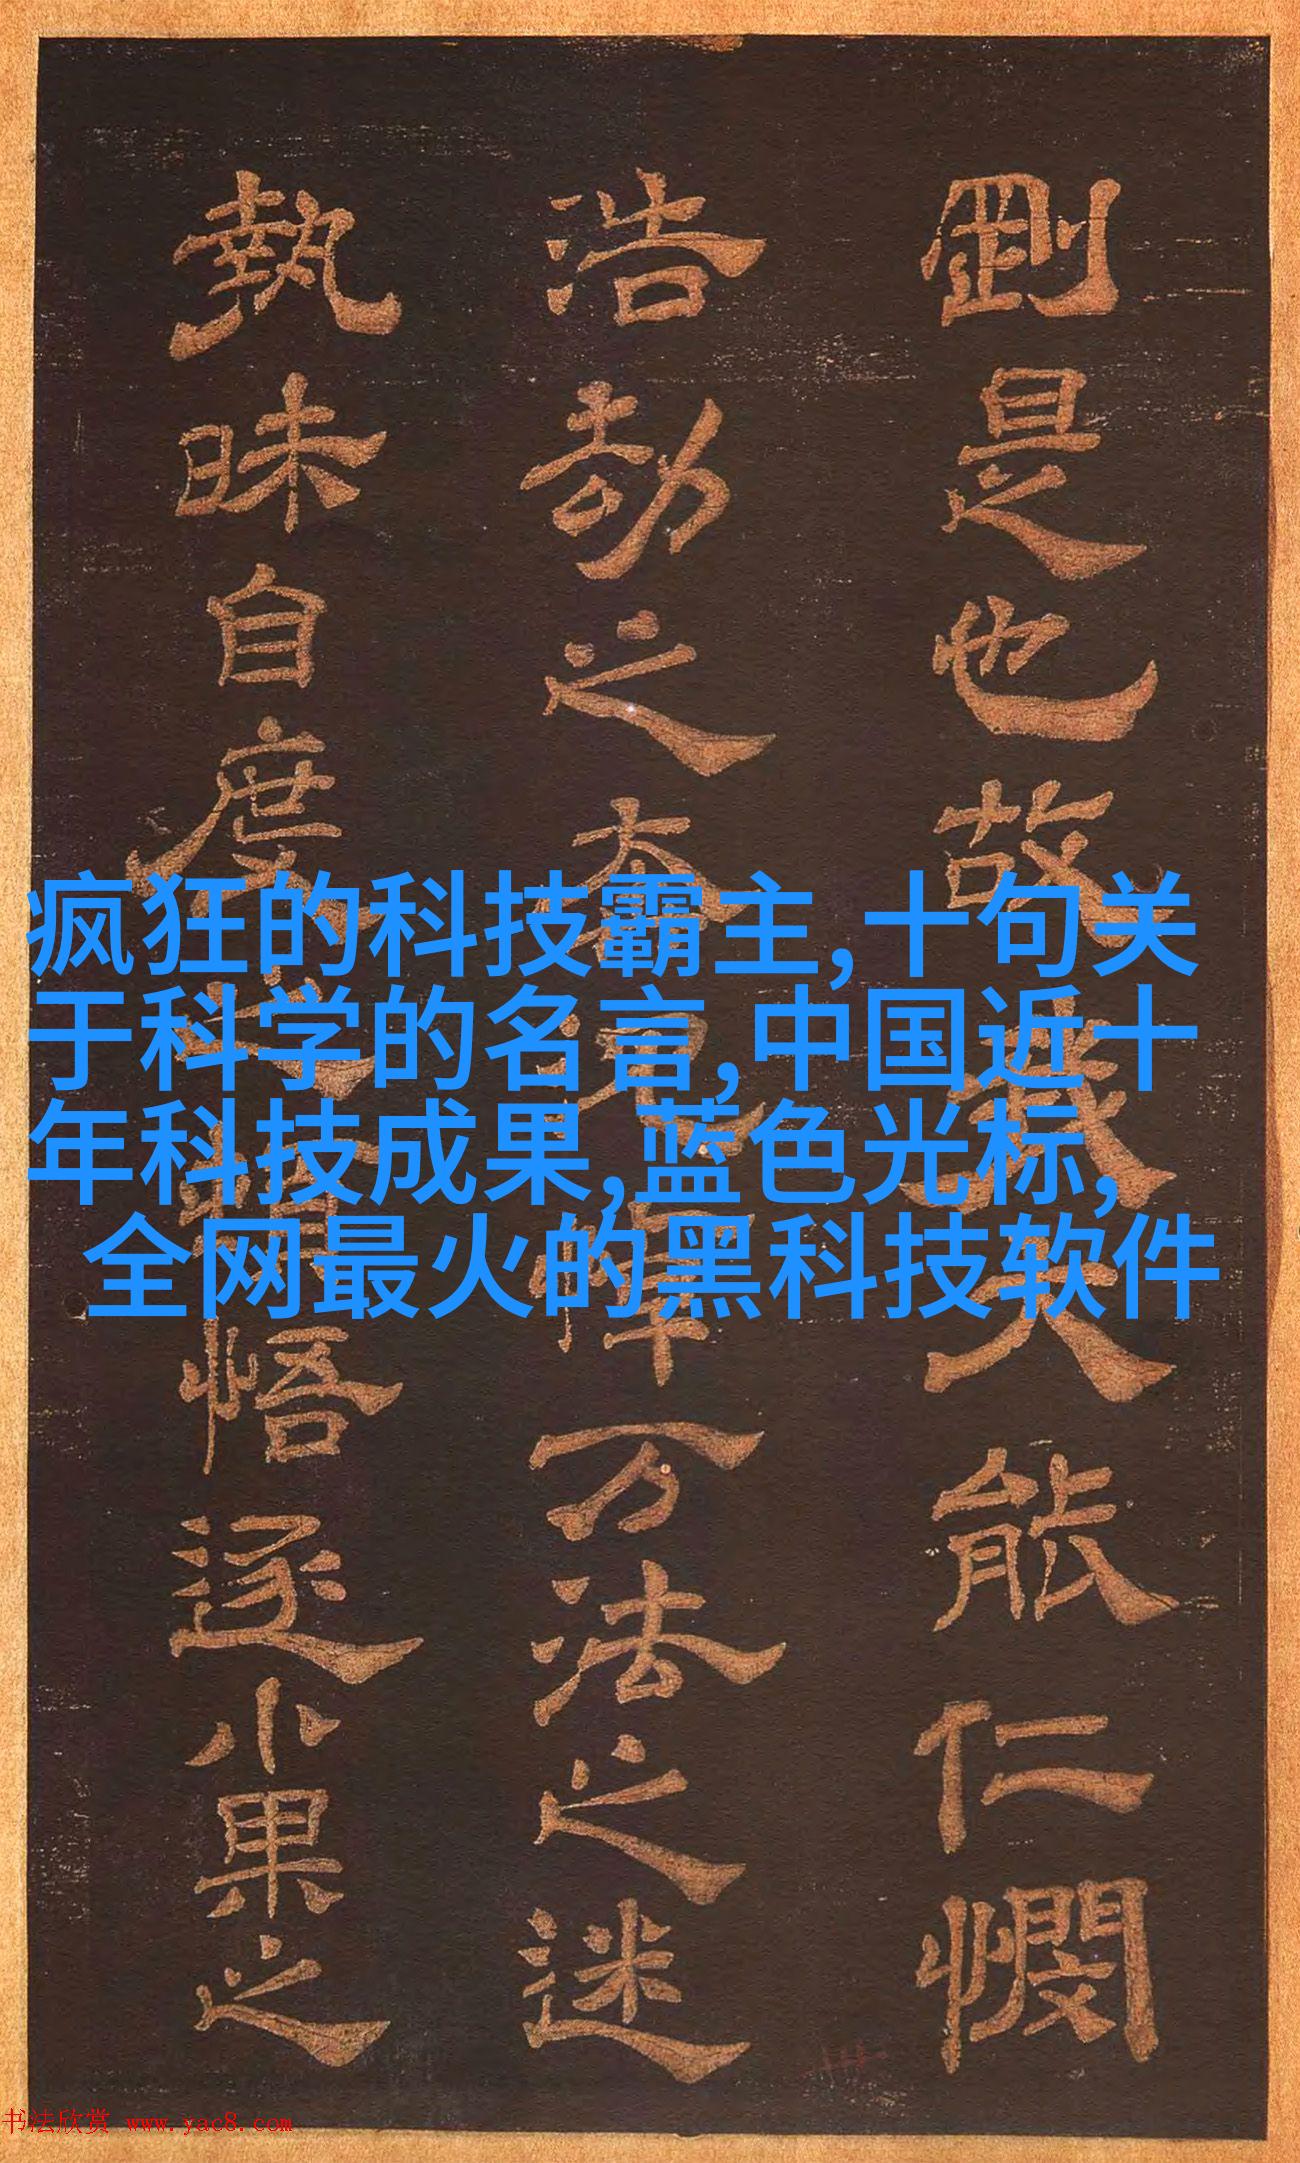 剛是也故大能仁憫
浩劫之万法之迷
執昧自度悟逐小果之
疯狂的科技霸主,十句关
于科学的名言,中国近十
年科技成果,蓝色光标,
全网最火的黑科技软件
书法欣赏 www.yac8.com